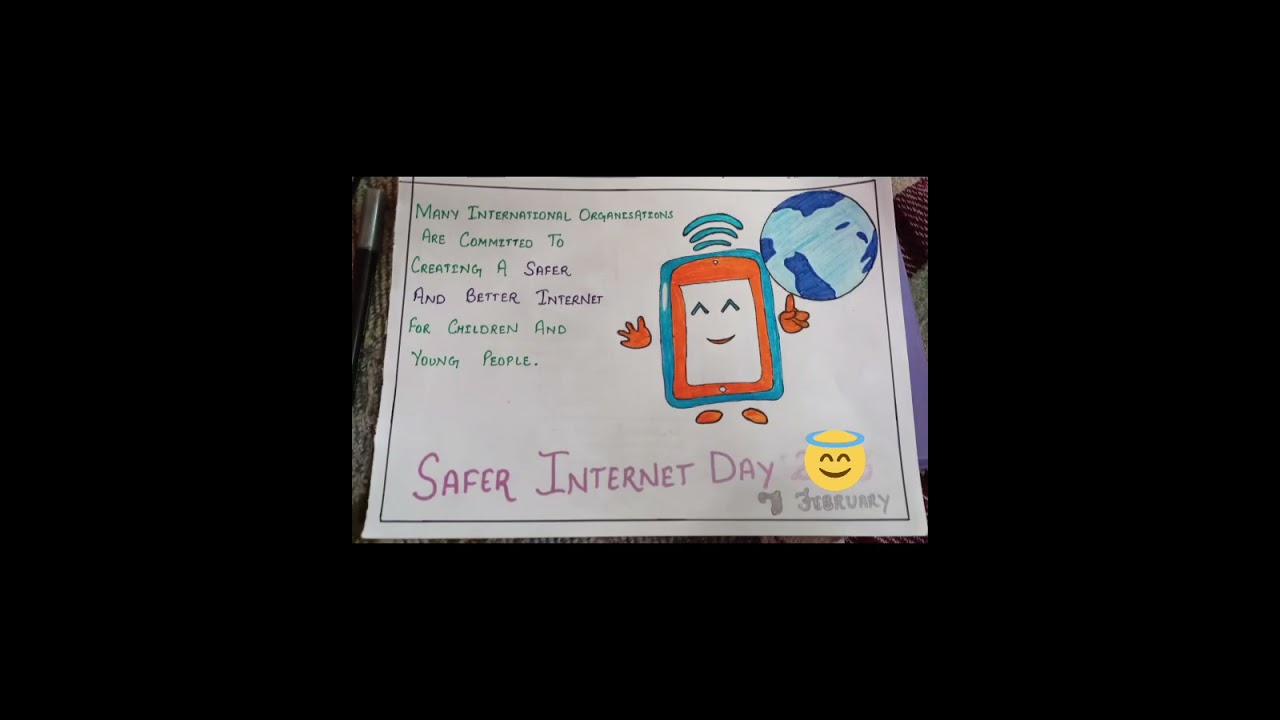 MANY INTERNATIONAL ORGANISATIONS
ARE COMMITTED TO
CREATING A SAFER
AND BETTER INTERNET
FOR CHILDREN AND
YOUNG PEOPLE.
SAFER INTERNET DAY
FEBRUARY